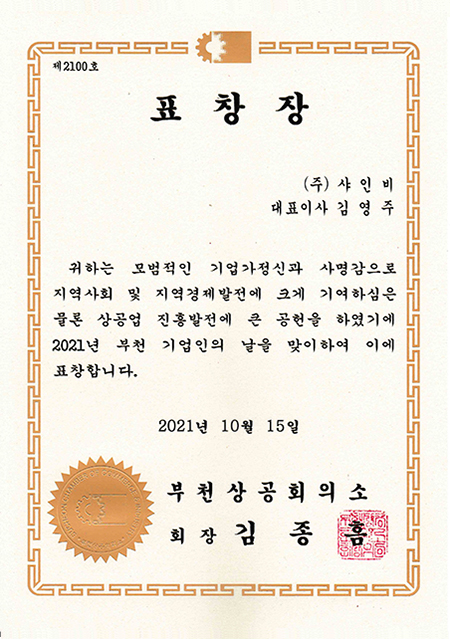 제2100호
표 창 장
(주) 샤 인 비
대표이사 김 영 주
귀하는 모범적인 기업가정신과 사명감으로
지역사회 및 지역경제발전에 크게 기여하심은
물론 상공업 진흥발전에 큰 공헌을 하였기에
2021년 부천 기업인의 날을 맞이하여 이에
표창합니다.
2021년 10월 15일
부천상공회의소
회장 김 종 흠